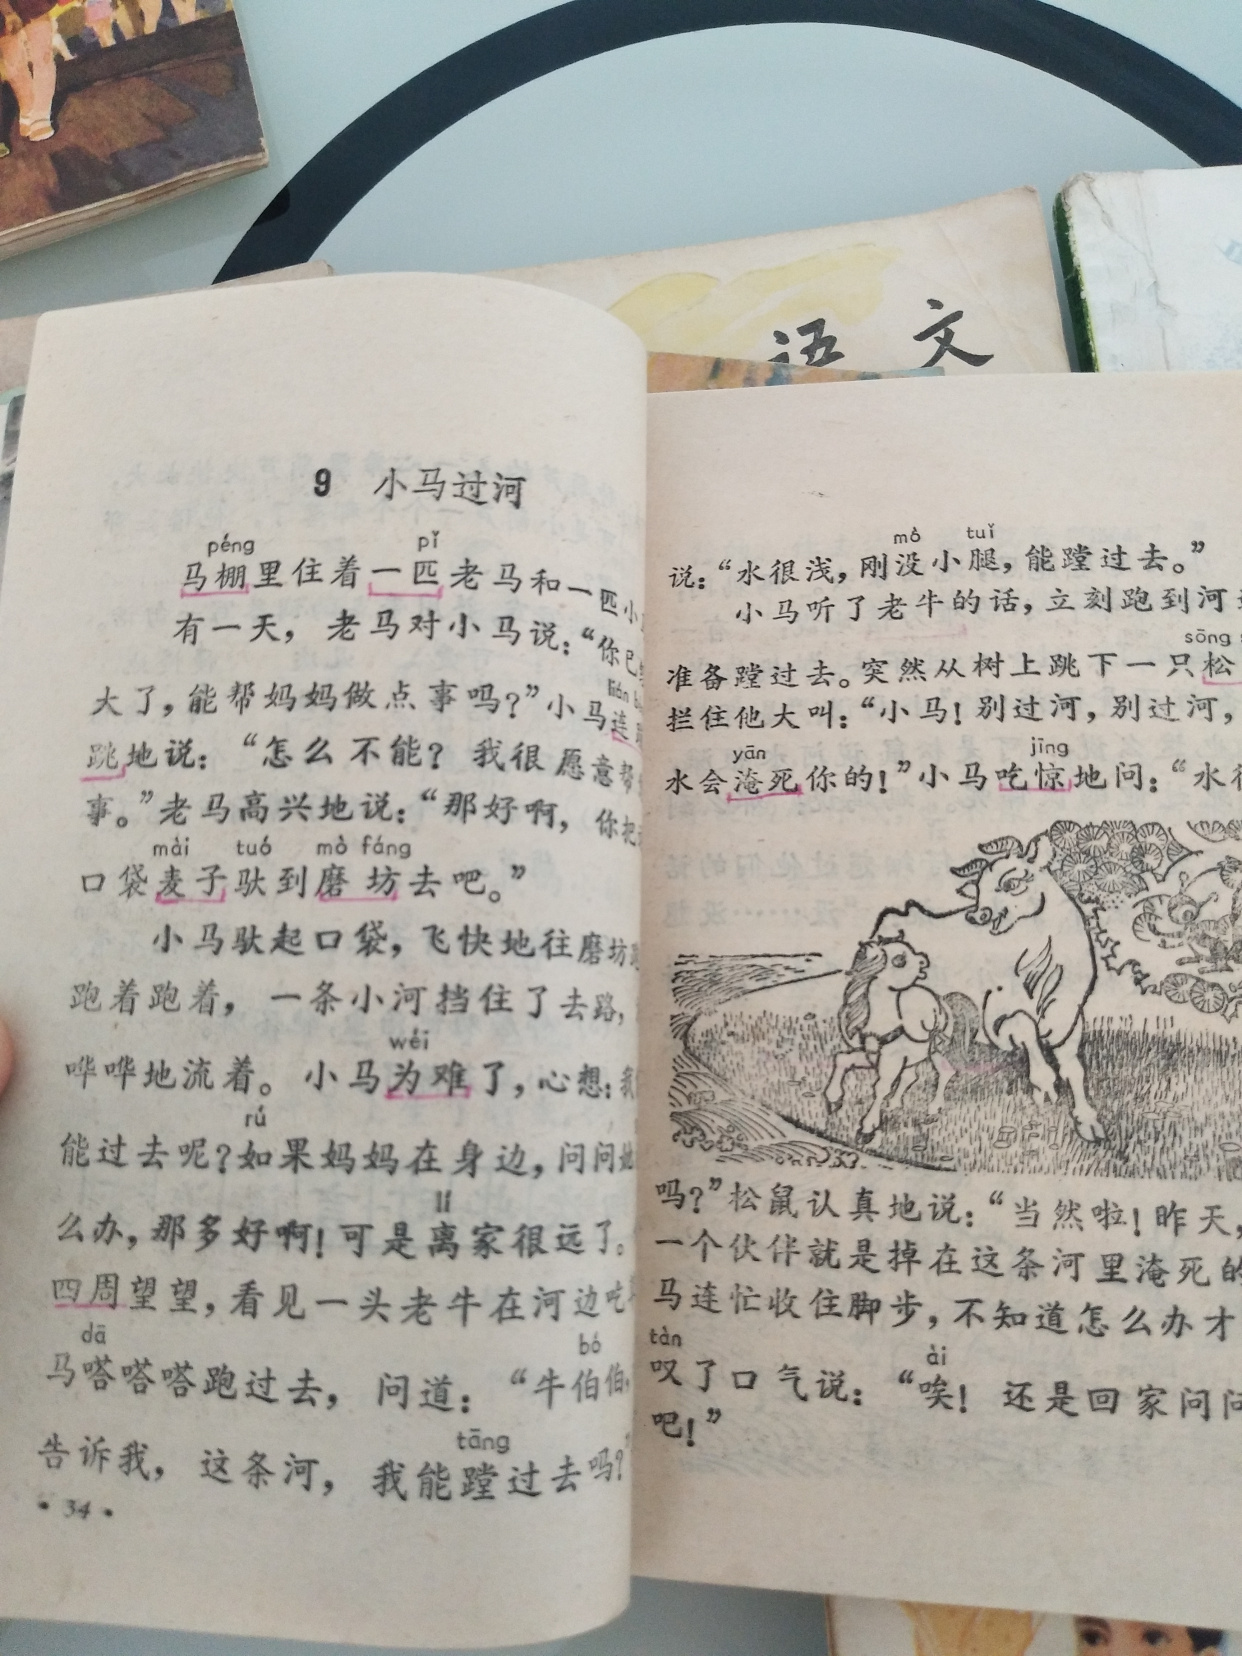 语 文
9 小马过河
péng pǐ
马棚里住着一匹老马和一匹小
有一天，老马对小马说：“你已
大了，能帮妈妈做点事吗？”小马连
跳地说：“怎么不能？我很愿意帮
事。”老马高兴地说：“那好啊，你把
mài tuó mò fáng
口袋麦子驮到磨坊去吧。”
小马驮起口袋，飞快地往磨坊
跑着跑着，一条小河挡住了去路，
wéi
哗哗地流着。小马为难了，心想：我
rú
能过去呢？如果妈妈在身边，问问她
lí
么办，那多好啊！可是离家很远了。
四周望望，看见一头老牛在河边吃
dā bó
马嗒嗒嗒跑过去，问道：“牛伯伯，
tāng
告诉我，这条河，我能蹚过去吗？
·34·
mò tuǐ
说：“水很浅，刚没小腿，能蹚过去。”
小马听了老牛的话，立刻跑到河
sōng
准备蹚过去。突然从树上跳下一只松
拦住他大叫：“小马！别过河，别过河，
yān jīng
水会淹死你的！”小马吃惊地问：“水很
吗？”松鼠认真地说：“当然啦！昨天，
一个伙伴就是掉在这条河里淹死的
马连忙收住脚步，不知道怎么办才
tàn ài
叹了口气说：“唉！还是回家问问
吧！”